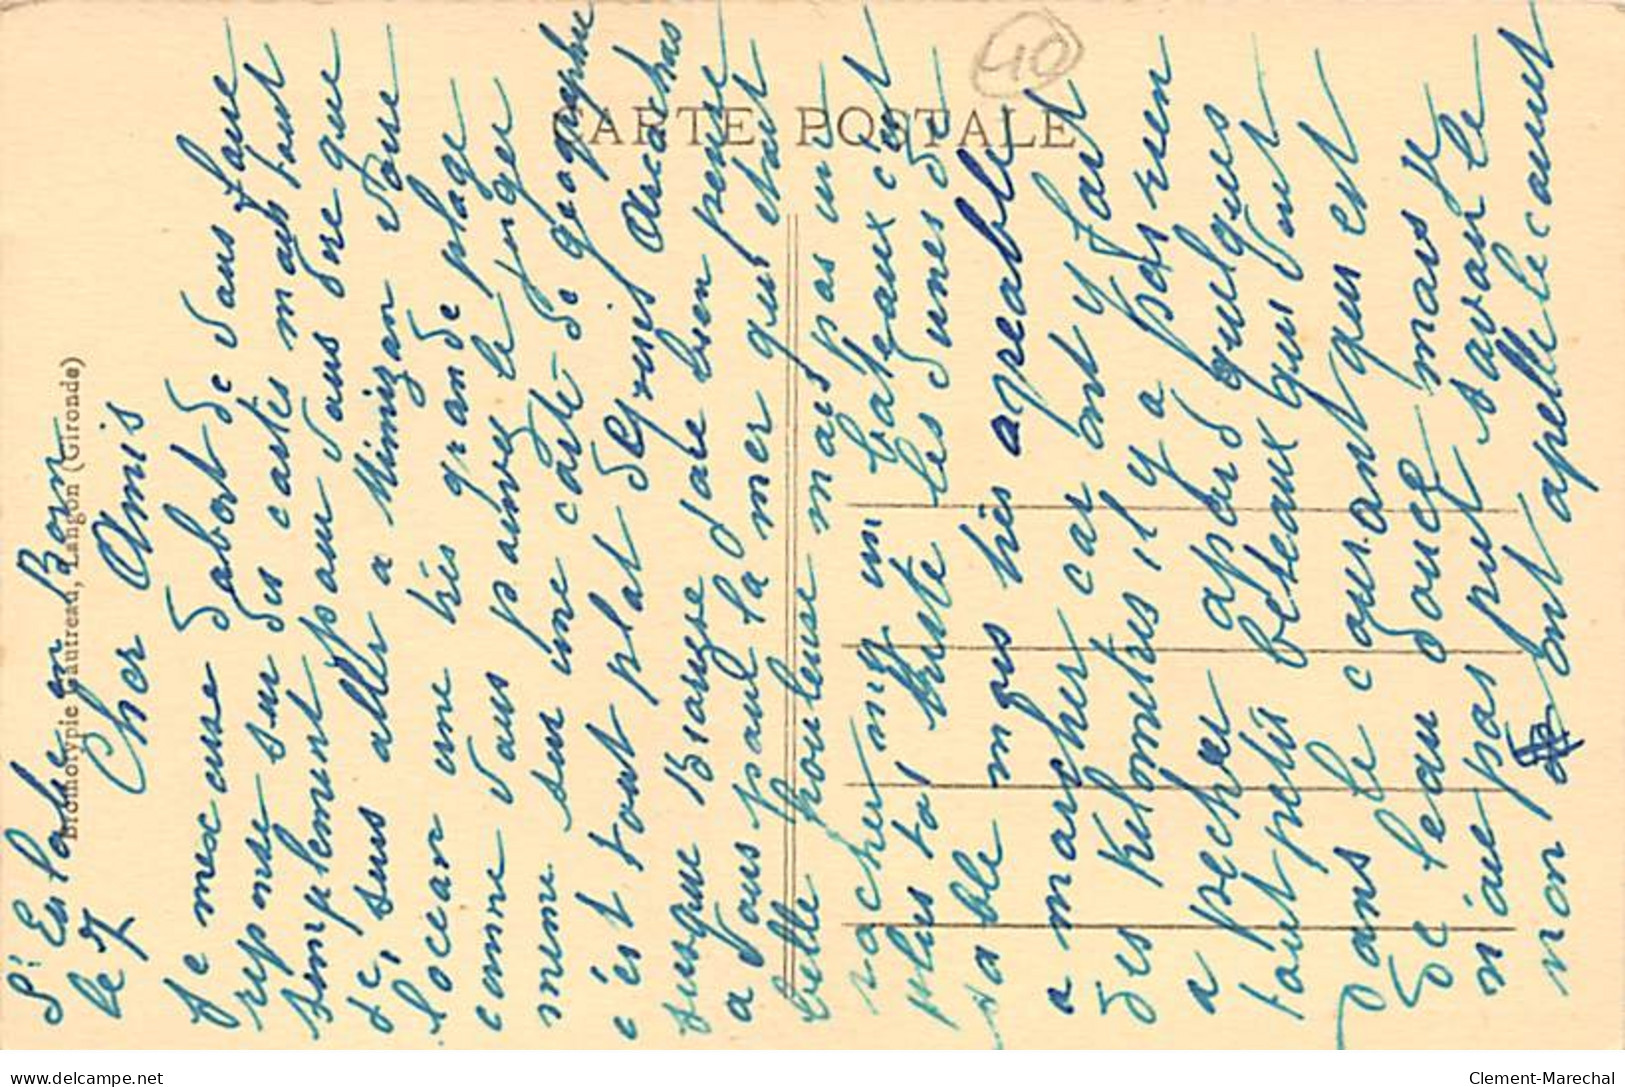 CARTE POSTALE
40
Bromotypie Gautreau, Langon (Gironde)
St Eulalie en Born
le 7
Cher Amis
Je mexcuse dabort de vous faire
reponse sur des cartes mais tout
simplement pour vous dire que
je suis aller a Mimizan voire
locean une très grande plage
comme vous pouvez le juger
meme sur une carte de géographie
c'est tout plat depuis Arcachas
jusque Biarize dare bien penue
a vous pour la mer qui était
belle houleuse mais pas un
rocher ni un bateaux c'est
plus tot triste les dunes de
sable mous très agreable
a marcher car ont y fart
des Kilomètres il y a pas rien
a pecher apard quelques
tout petis beteaux qui sont
dans le courant qui est
de leau douce mais je
n'aie pas put savoir le
nom ont apelle le cauet
Clement-Marechal
delcampe.net